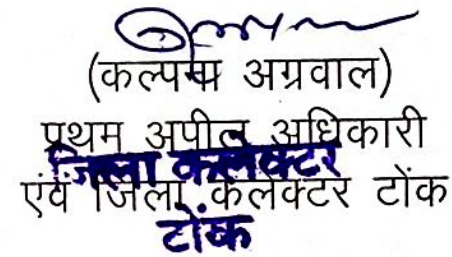 (कल्पना अग्रवाल)
प्रथम अपील अधिकारी
जिला कलेक्टर
एवं जिला कलेक्टर टोंक
टोंक